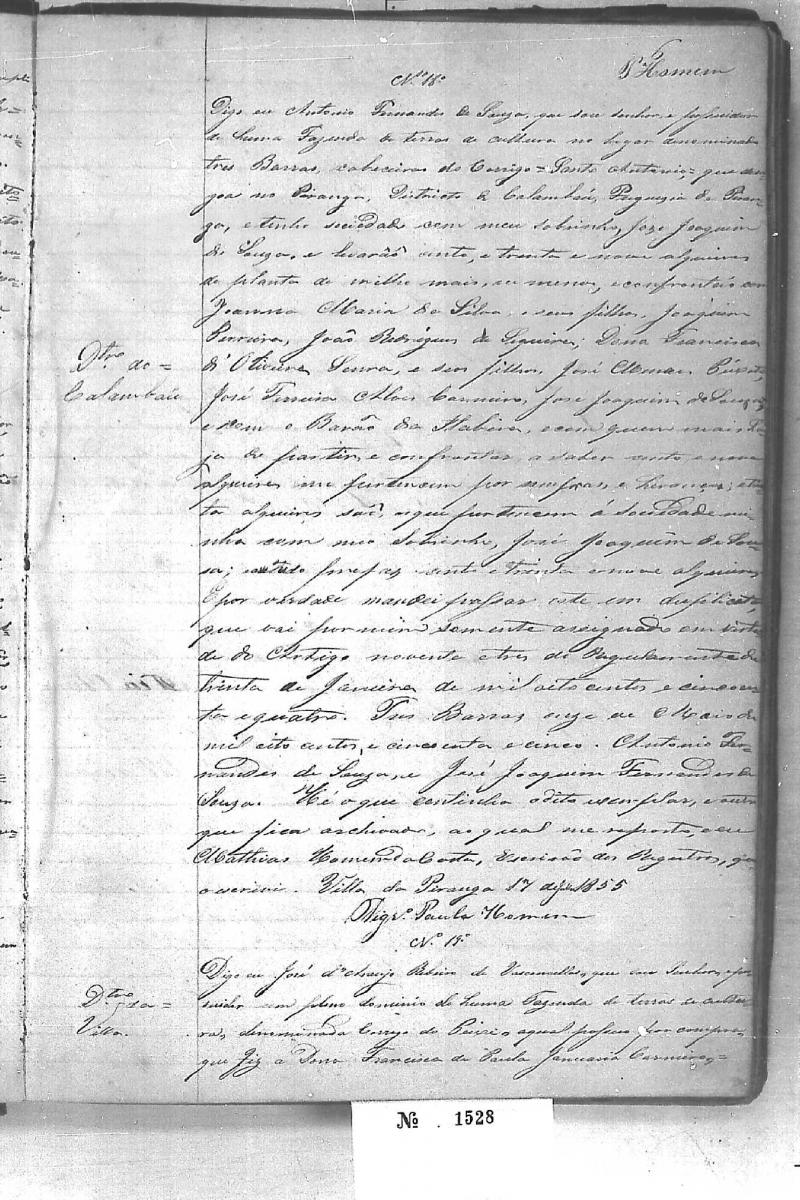 P Homem
N.º 18.º
Digo eu Antonio Fernandes de Souza, que sou senhor, e possuidor
de huma Fazenda de terras de cultura no lugar denominado
tres Barras, cabeceiras do Corrigo = Santo Antonio, que
no Piranga, Districto de Calambáu, Freguezia de Piran-
ga, e tenho sociedade com meu sobrinho, Joze Joaquim
de Souza, e levarão cento, e trenta e nove alqueires
de planta de milho mais, ou menos, e confrontão com
Joanna Maria da Silva, e seus filhos, Joaquim
Perreira, João Rodrigues de Siqueira; Dona Francisca
D'Oliveira Senra, e seos filhos, José
José Ferreira Alves Carneiro, Jose Joaquim de Souza,
e com o Barão da Itabira, e com quem mais ha-
ja de partir, e confrontar, a saber cento e nove
alqueires me pertencem por compras, e heranças; e trin-
ta alqueires saõ, os que pertencem á sociedade mi-
nha com meo sobrinho, José Joaquim de Sou-
sa; e tudo prefaz cento e trinta e nove alqueires.
E por verdade mandei passar este em duplicata
que vai por mim somente assignado em virtu-
de do Artigo noventa e tres do Regulamento de
trinta de Janeiro de mil oito centos, e cincoen-
ta e quatro. Tres Barras onze de Maio de
mil oito centos, e cincoenta e cinco. Antonio Fer-
nandes de Souza, e José Joaquim Fernandes de
Souza. Hé o que continha o dito exemplar, e outro
que fica archivado, ao qual me reporto, e eu
Mathias Homem da Costa, Escrivão dos Registros, que
o escrivi. Villa da Piranga 17 de 1855
Vigr.º Paula Homem
D.tro do =
Calambáu
N.º 19.º
Digo eu José d'Araujo Ribeiro de Vasconcellos, que sou Senhor, e pos-
suidor em pleno dominio de huma Fazenda de terras de cultu-
ra, denominada Corrigo do Peixe, a qual possuo por compra,
que fiz a Dona Francisca de Paula Januaria Carneiro, =
D.tro da =
Villa.
Nº . 1528